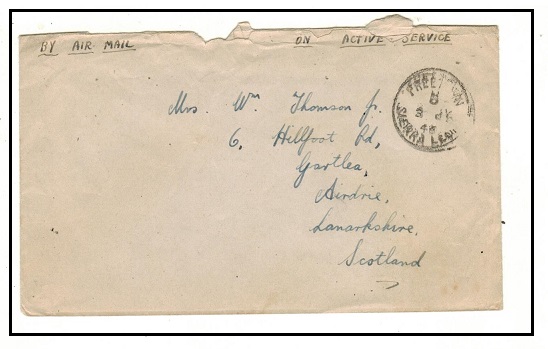 BY AIR MAIL
ON ACTIVE SERVICE
FREETOWN
SIERRA LEONE
Mrs. Wm Thomson jr.
6, Hillfoot Rd,
Gartlea,
Airdrie,
Lanarkshire,
Scotland